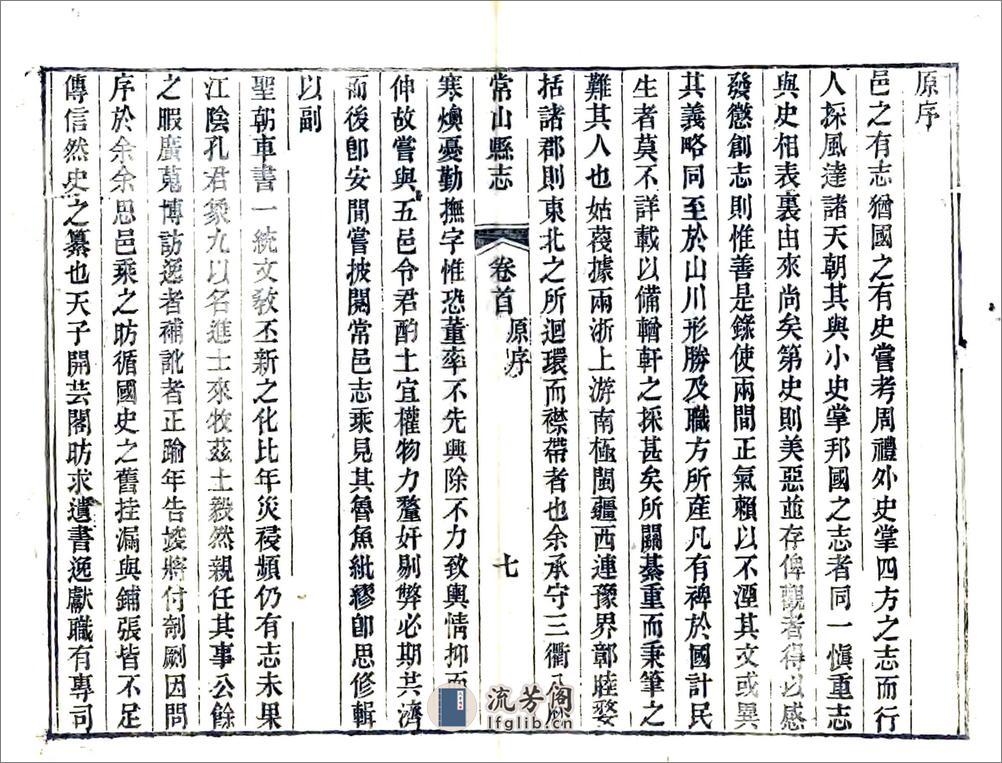 原序
邑之有志猶國之有史嘗考周禮外史掌四方之志而行
人採風達諸天朝其與小史掌邦國之志者同一慎重志
與史相表裏由來尚矣第史則美惡並存俾觀者得以感
發懲創志則惟善是錄使兩間正氣賴以不湮其文或異
其義略同至於山川形勝及職方所產凡有裨於國計民
生者莫不詳載以備輶軒之採甚矣所關綦重而秉筆之
難其人也姑葰據兩浙上游南極閩疆西連豫界鄣睦婺
括諸郡則東北之所迴環而襟帶者也余承守三衢
常山縣志
卷首
原序
七
寒燠憂勤撫字惟恐董率不先興除不力致輿情抑而
伸故嘗與五邑令君酌土宜權物力釐奸剔弊必期共濟
而後卽安間嘗披閱常邑志乘見其魯魚紕繆卽思修輯
以副
聖朝車書一統文敎丕新之化比年災祲頻仍有志未果
江陰孔君象九以名進士來牧茲土毅然親任其事公餘
之暇廣蒐博訪逸者補訛者正踰年告竣將付剞劂因問
序於余余思邑乘之昉循國史之舊挂漏與鋪張皆不足
傳信然史之纂也天子開芸閣昉求遺書逸獻職有專司
流芳阁
lfglib.cn